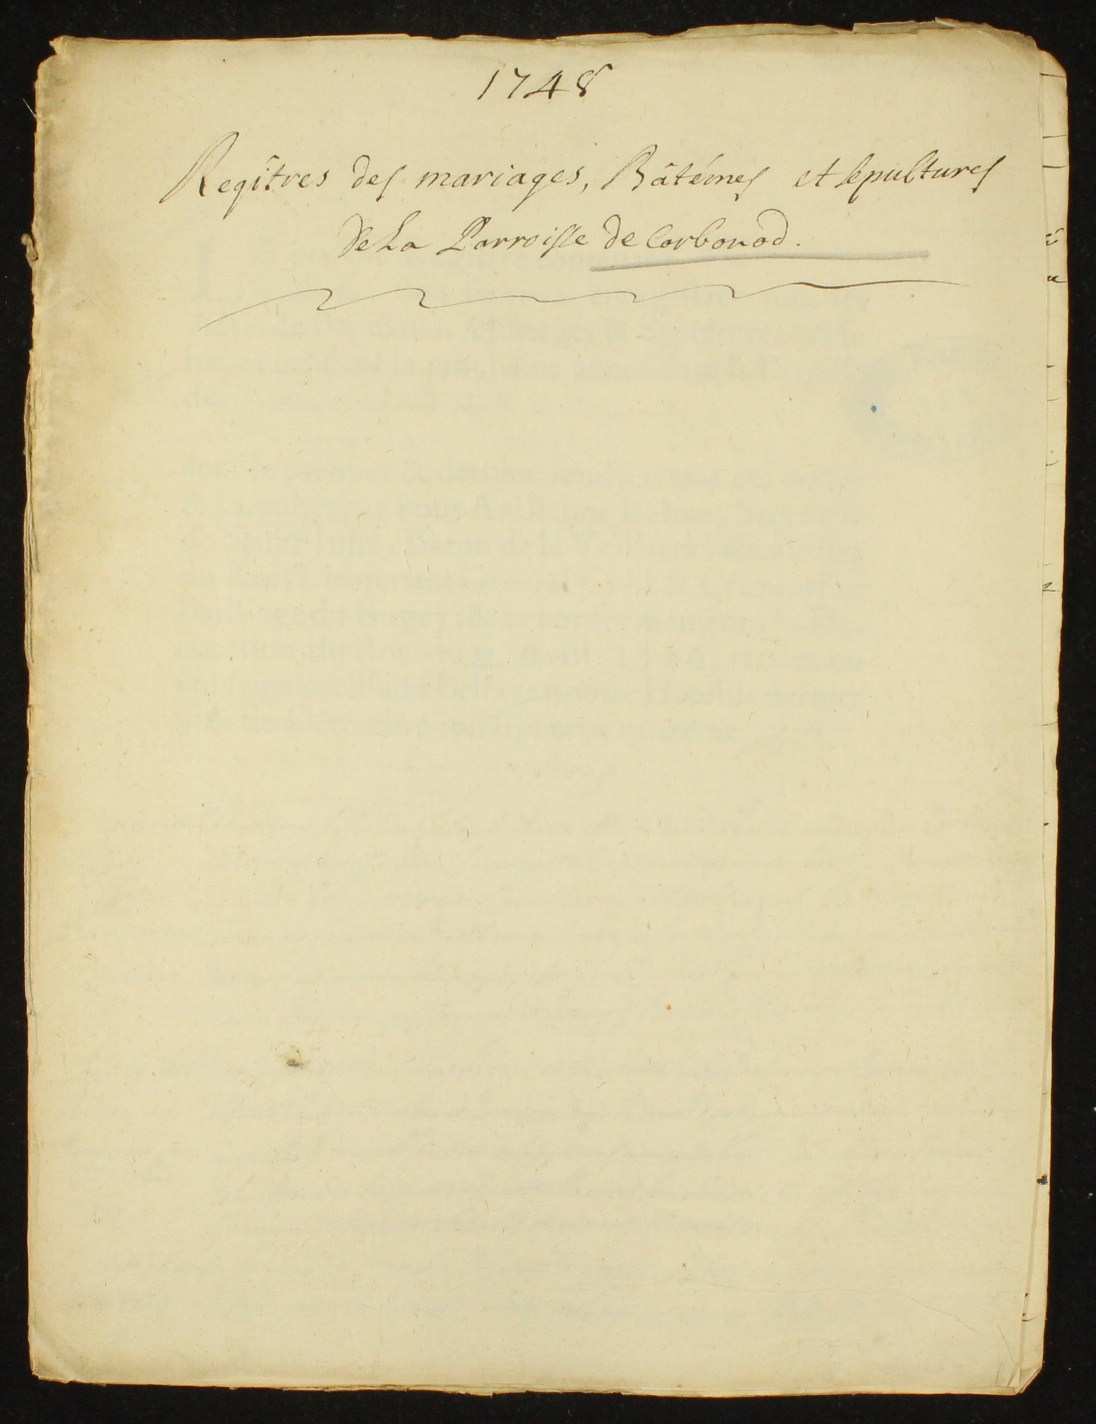 1748
Regîtres des mariages, Bâtémes et sepultures
de La Parroisse de Corbonod.